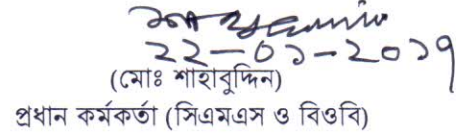 22-01-2019
(মোঃ শাহাবুদ্দিন)
প্রধান কর্মকর্তা (সিএমএস ও বিওবি)